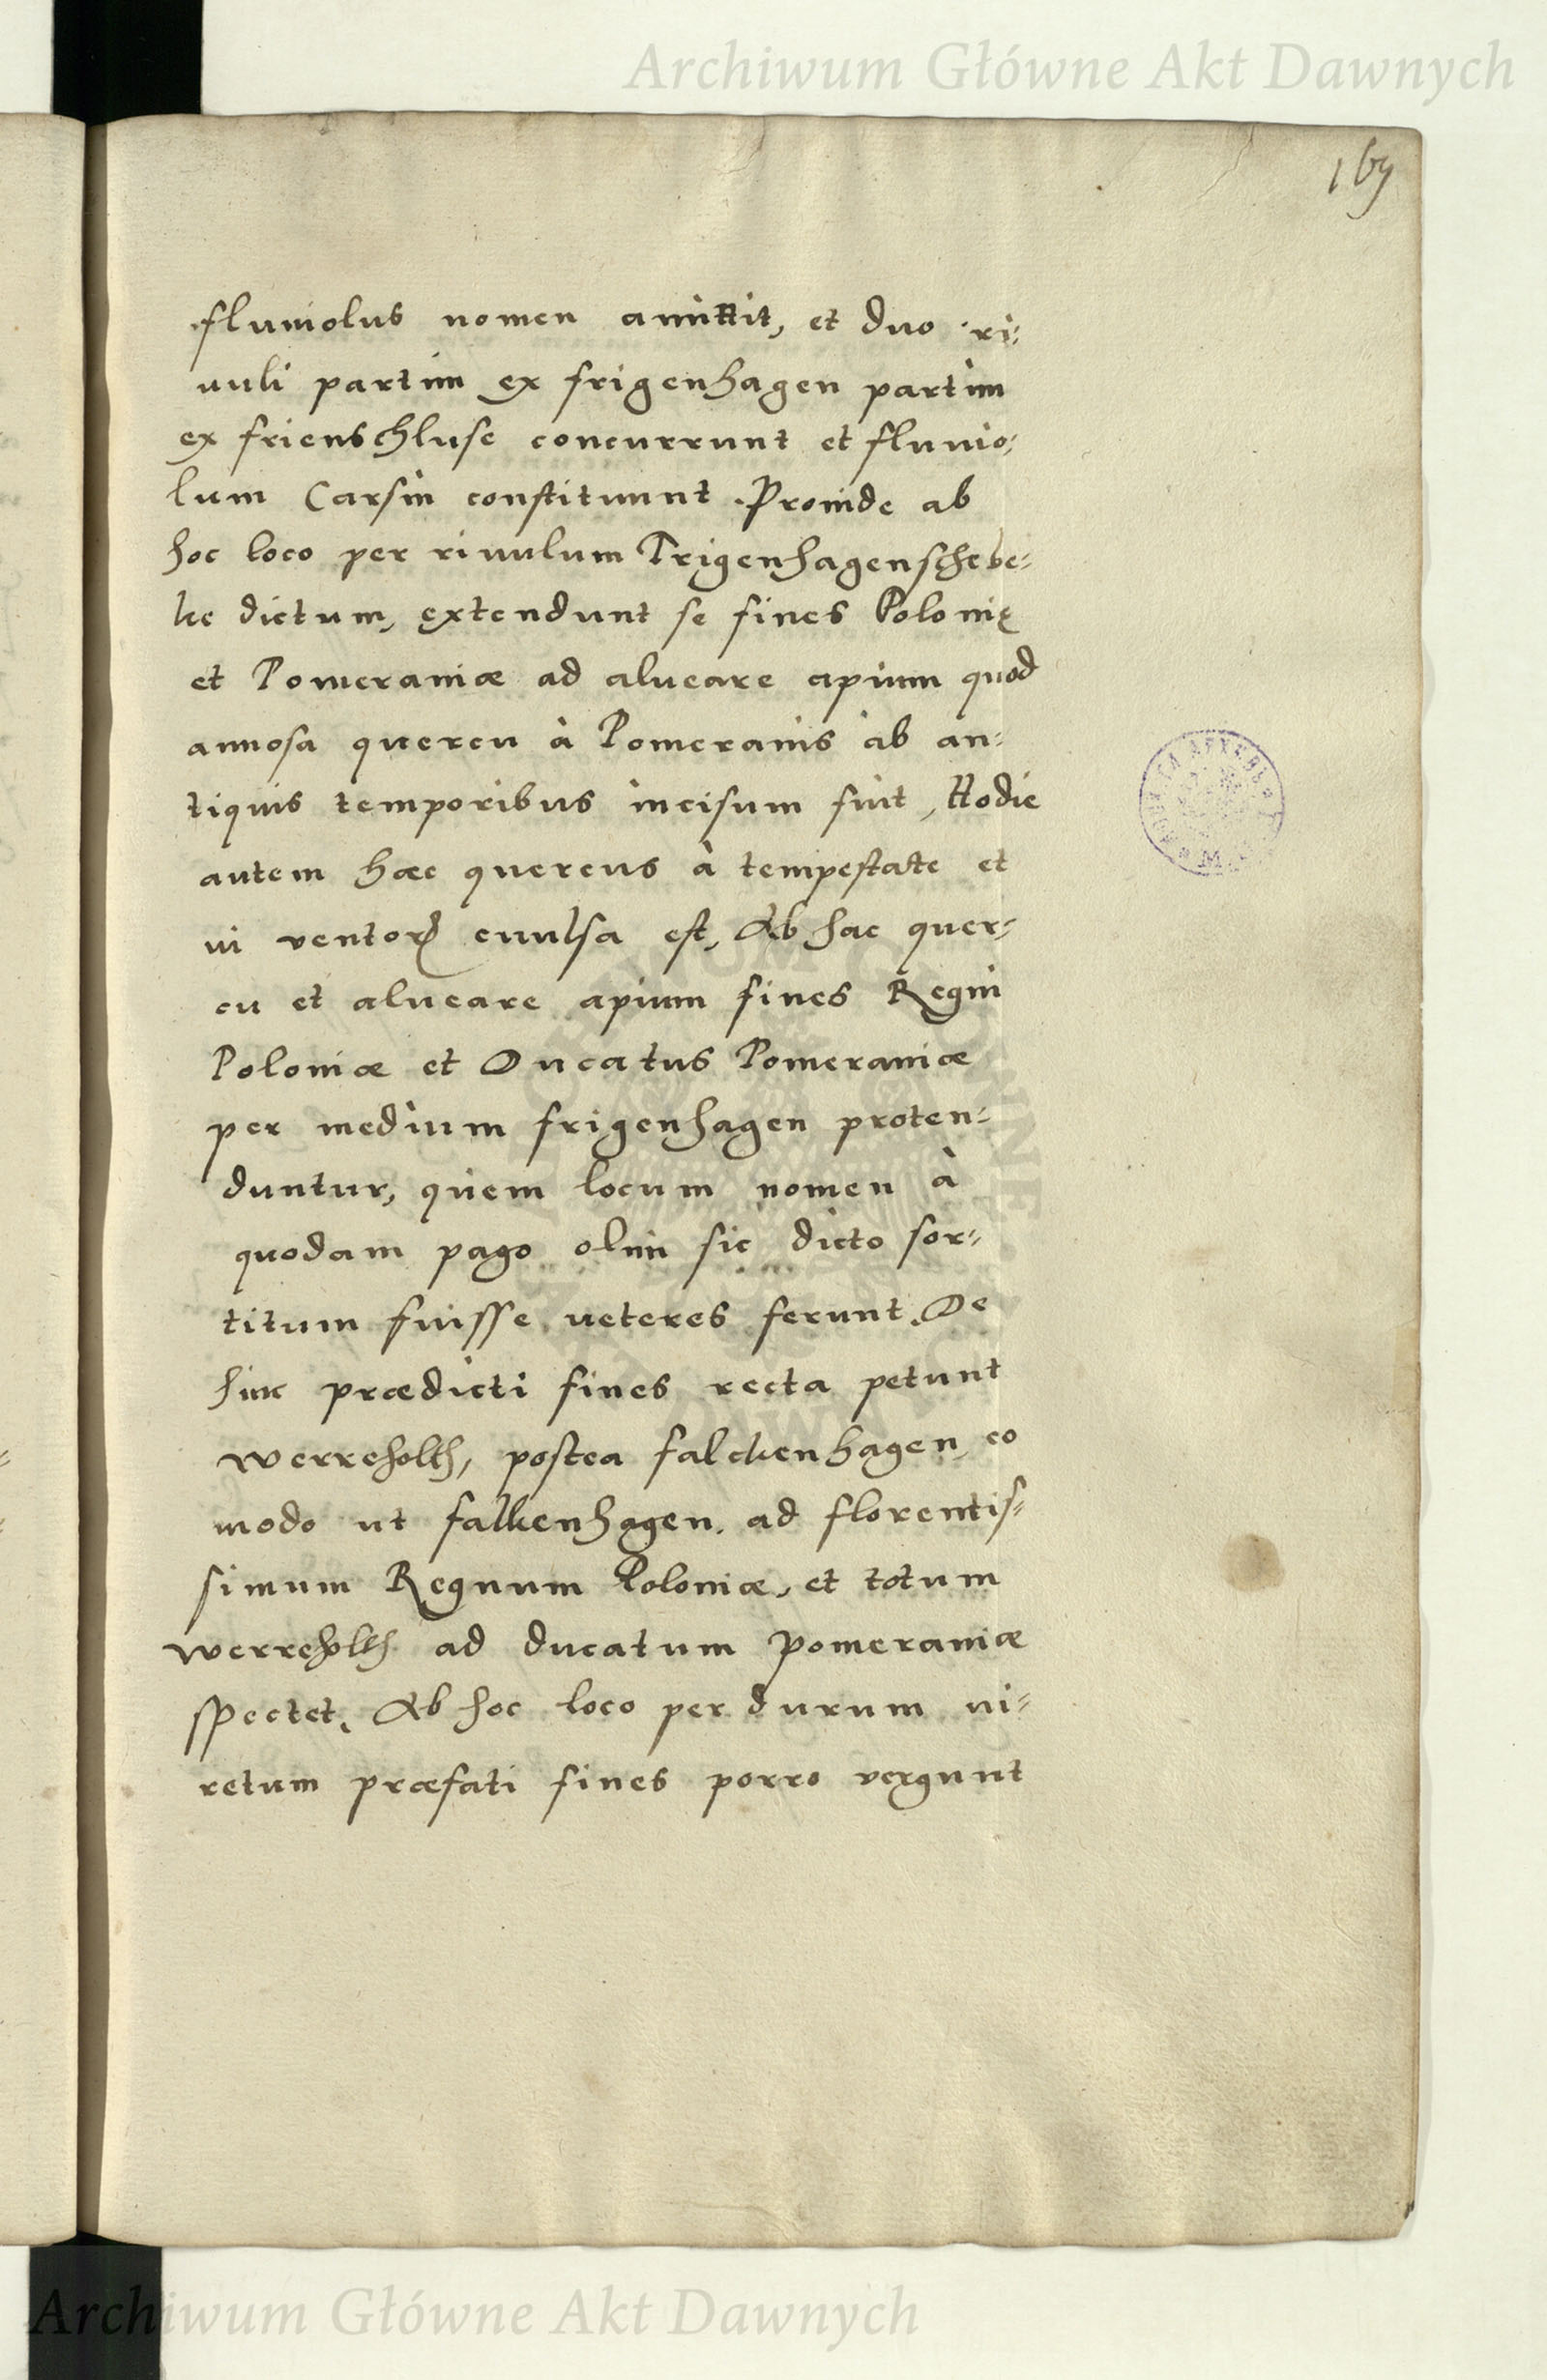 Archiwum Główne Akt Dawnych
169
fluuiolus nomen amittit, et duo ri-
uuli partim ex frigenhagen partim
ex frienschluse concurrunt et fluuio-
lum Carsin constituunt. Proinde ab
hoc loco per riuulum Frigenhagenschebe-
ke dictum, extendunt se fines Polonię
et Pomeraniæ ad alueare apium quod
annosa quercu à Pomeranis ab an-
tiquis temporibus incisum fuit, Hodie
autem hæc quercus à tempestate et
ui ventorꝝ euulsa est, Ab hac quer-
cu et alueare apium fines Regni
Poloniæ et Ducatus Pomeraniæ
per medium frigenhagen proten-
duntur, quem locum nomen à
quodam pago olim sic dicto sor-
titum fuisse ueteres ferunt. De
hinc prædicti fines recta petunt
werreholtz, postea falckenhagen, eo
modo ut falkenhagen. ad florentis-
simum Regnum Poloniæ, et totum
werreholtz ad ducatum pomeraniæ
spectet, Ab hoc loco per durum ui-
retum præfati fines porro vergunt
Archiwum Główne Akt Dawnych